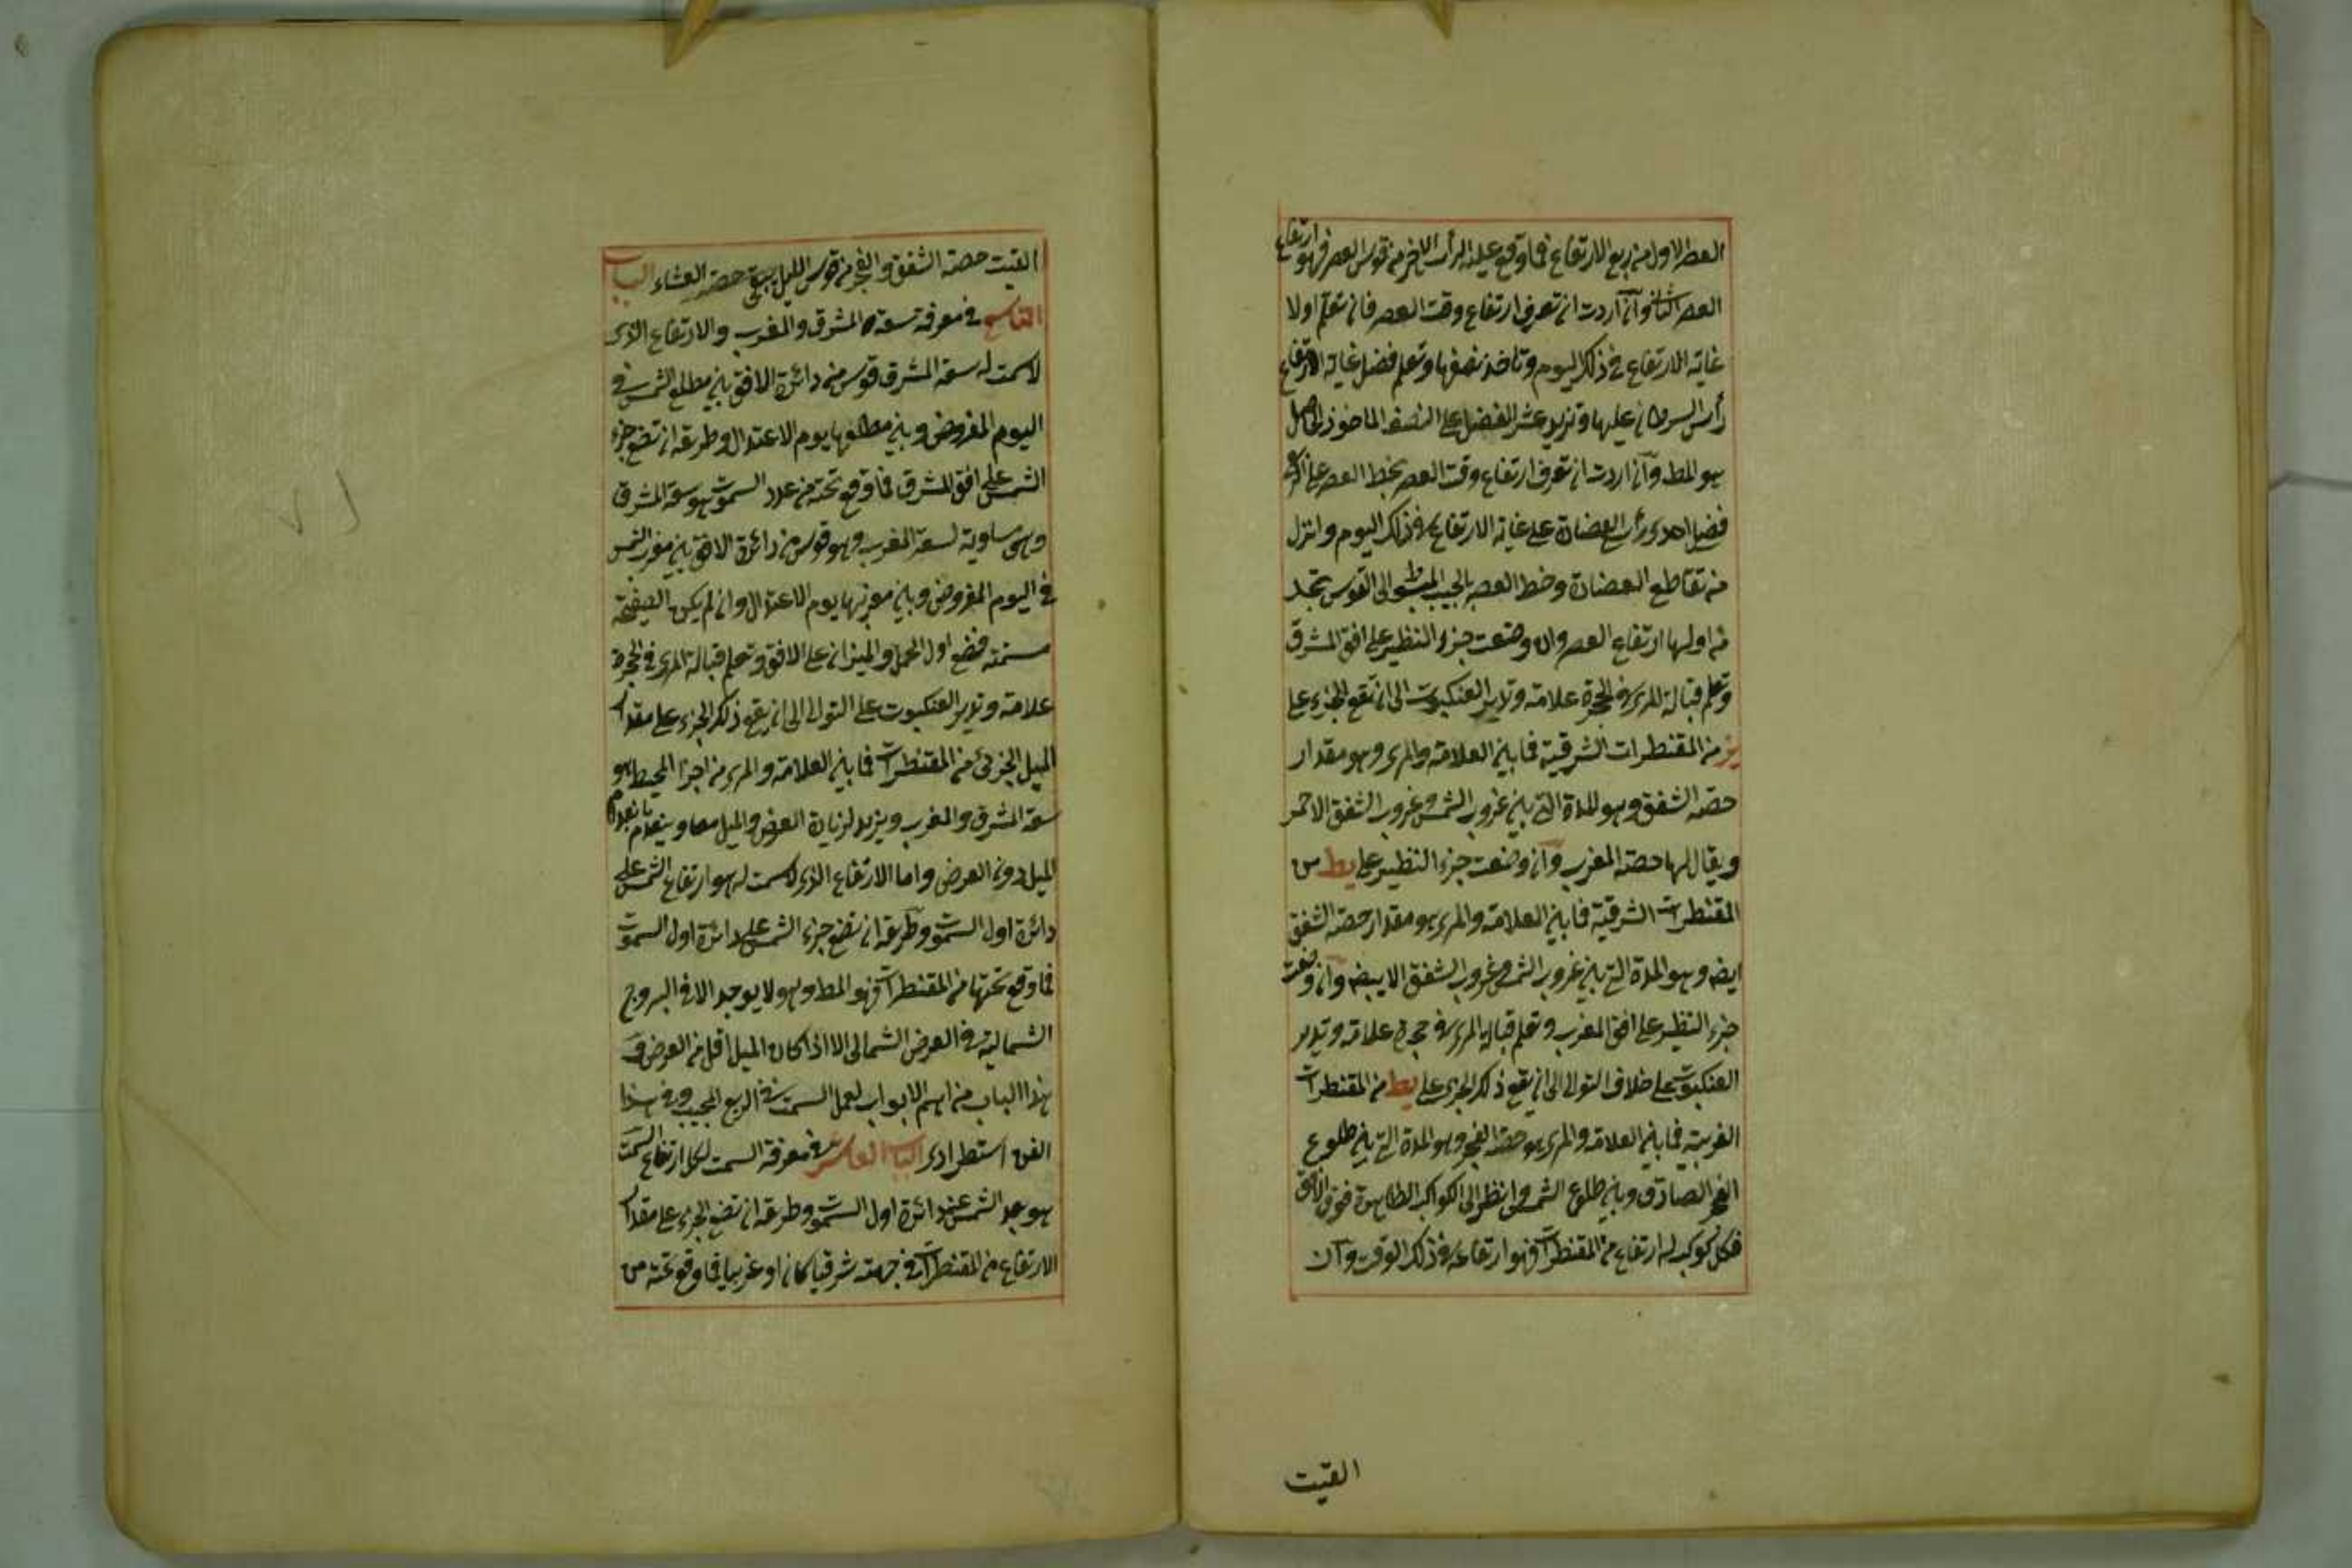 العصر الاول من ربع الارتفاع فما وقع عليه الرأس الاخر من قوس العصر فهو ارتفاع
العصر الثانى وان اردت ان تعرف ارتفاع وقت العصر فان تعلم اولا
غاية الارتفاع فى ذلك اليوم وتاخذ نصفها وتعلم فضل غاية الارتفاع
رأس السرطان عليها وتزيد عشر الفضل على النصف الماخوذ فالحاصل
هو المط وان اردت ان تعرف ارتفاع وقت العصر بخط العصر على
فضع احدى رأس العضادة على غاية الارتفاع فى ذلك اليوم وانزل
من تقاطع العضادة وخط العصر بالجيب المبسوط الى القوس تجد
من اولها ارتفاع العصر وان وضعت جزء النظير على افق المشرق
وتعلم قبالة المرى فى الحجرة علامة وتدير العنكبوت الى ان تقع الجزء على
يز من المقنطرات الشرقية فما بين العلامة والمرى وهو مقدار
حصة الشفق وهو المدة التى بين غروب الشمس وغروب الشفق الاحمر
ويقال لها حصة المغرب وان وضعت جزء النظير على يط من
المقنطرات الشرقية فما بين العلامة والمرى هو مقدار حصة الشفق
ايضه وهو المدة التى بين غروب الشمس وغروب الشفق الابيض وان وضعت
جزء النظير على افق المغرب وتعلم قبالة المرى فى حجرة علامة وتدير
العنكبوت على خلاف التوالى الى ان يقع ذلك الجزء على يط من المقنطرات
الغربية فما بين العلامة والمرى هو حصة الفجر وهو المدة التى بين طلوع
الفجر الصادق وبين طلوع الشمس وانظر الى الكواكب الظاهرة فوق الافق
فكل كوكب له ارتفاع من المقنطرات فهو ارتفاعه فى ذلك الوقت وان
القيت
القيت حصة الشفق والفجر من قوس الليل يبقى حصة العشاء الباب
التاسع فى معرفة سعة المشرق والمغرب والارتفاع الذى
لاسمت له سعة المشرق قوس من دائرة الافق بين مطلع الشمس فى
اليوم المفروض وبين مطلعها يوم الاعتدال وطريقه ان تضع جزء
الشمس على افق المشرق فما وقع تحته من عدد السموت هو سعة المشرق
وهى مساوية لسعة المغرب وهو قوس من دائرة الافق بين مغرب الشمس
فى اليوم المفروض وبين مغربها يوم الاعتدال وان لم يكن الصفيحة
مسمتة فضع اول الحمل والميزان على الافق وتعلم قبالة المرى فى الحجرة
علامة وتدير العنكبوت على التوالى الى ان يقع ذلك الجزء على مقدار
الميل الجزئى من المقنطرات فما بين العلامة والمرى من اجزا المحيط هو
سعة المشرق والمغرب ويزيد لزيادة العرض والميل معا وينعدم بانعدام
الميل دون العرض واما الارتفاع الذى لاسمت له هو ارتفاع الشمس على
دائرة اول السموت وطريقه ان تضع جزء الشمس على دائرة اول السموت
فما وقع تحتها من المقنطرات فهو المط وهو لا يوجد الا فى البروج
الشمالية فى العرض الشمالى الا اذا كان الميل اقل من العرض وفى
هذا الباب من اهم الابواب لعمل السمت فى الربع المجيب وفى هذا
الفن استطرادى الباب العاشر فى معرفة السمت لكل ارتفاع السمت
هو بعد الشمس عن دائرة اول السموت وطريقه ان تضع الجزء على مقدار
الارتفاع من المقنطرات فى جهته شرقيا كان او غربيا فما وقع تحته من